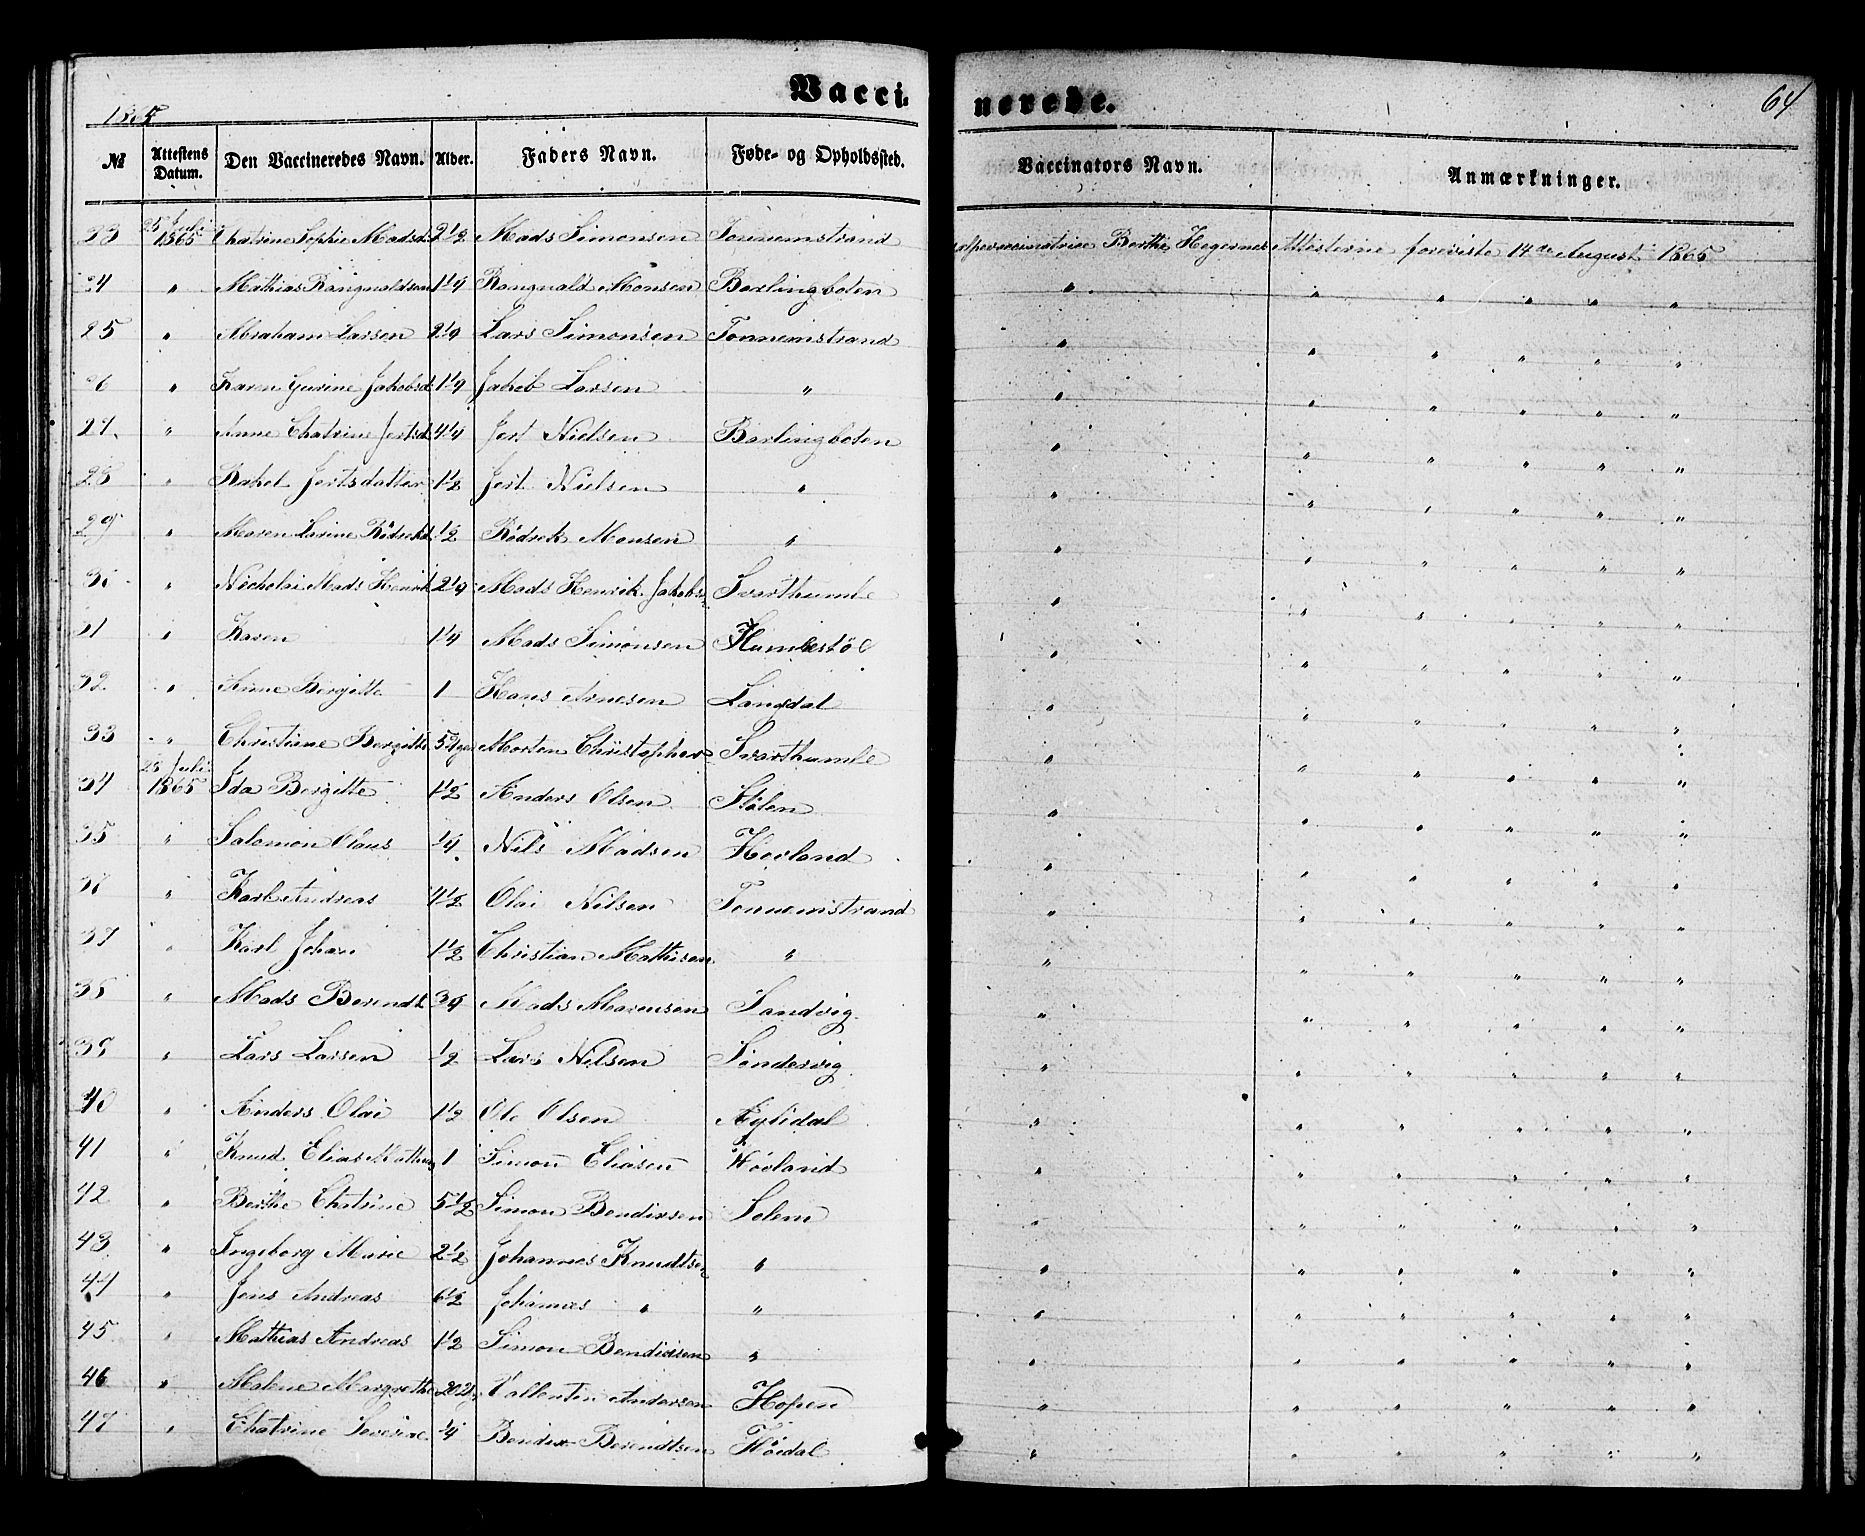 Vaccinerede.
64
1865
№ Attestens Datum. Den Vaccineredes Navn. Alder. Faders Navn. Føde- og Opholdssted. Vaccinators Navn. Anmærkninger.
23 25 Juli 1865 Chatrine Sophie Madsd 2½ Mads Simonsen Tonnemstrand Berthe Hegernes Attesterne foreviste 14de August 1865
24 " Mathias Rangnaldsen 1¼ Rangnald Monsen Barlingboten " " " " " "
25 " Abraham Larsen 2¼ Lars Simonsen Tonnemstrand " " " " " "
26 " Karen Gurine Jakobsd 1¼ Jakob Larsen " " " " " " "
27. " Anne Chatrine Jertsd 4¼ Jert Nielsen Barlingboten " " " " " "
28 " Rahel Jertsdatter 1½ Jert Nielsen " " " " " " "
29 " Maren Larine Rödrekd ½ Rödrek Monsen " " " " " " "
30 " Nicholai Mads Henrik 2¼ Mads Henrik Jakobs. Svarthumle " " " " " "
31 " Karen 1¼ Mads Simonsen Humlestöl " " " " " "
32 " Anne Bergitte 1 Hans Arnesen Langdal " " " " " "
33 " Christiane Bergitte Morten Christophers Svarthumle " " " " " "
34 28 Juli 1865 Ida Bergitte 1½ Anders Olsen Stölen " " " " " "
35 " Salomon Olaus ¼ Nils Madsen Hovland " " " " " "
36 " Karl Andreas 4½ Olai Nilsen Tonnemstrand " " " " " "
37 " Karl Johan 1½ Christian Mathisen " " " " " " "
38 " Mads Berendt ¾ Mads Marensen Sandvig. " " " " " "
39 " Lars Larsen ½ Lars Nilsen Söndervig " " " " " "
40 " Anders Olai 1½ Ole Olsen " " " " " "
41 " Knud Elias Mathias 1 Simon Eliasen Hovland " " " " " "
42 " Berthe Chatrine 5½ Simon Bendixsen Solem " " " " " "
43 " Ingeborg Marie 2½ Johannes Knudtsen " " " " " " "
44 " Jens Andreas 6½ Johannes " " " " " " " "
45 " Mathias Andreas 1½ Simon Bendixsen " " " " " " "
46 " Malene Margrethe Vallentin Andersen Hopen " " " " " "
47 " Chatrine Severine ¼ Bendix Berendtsen Höidal " " " " " "